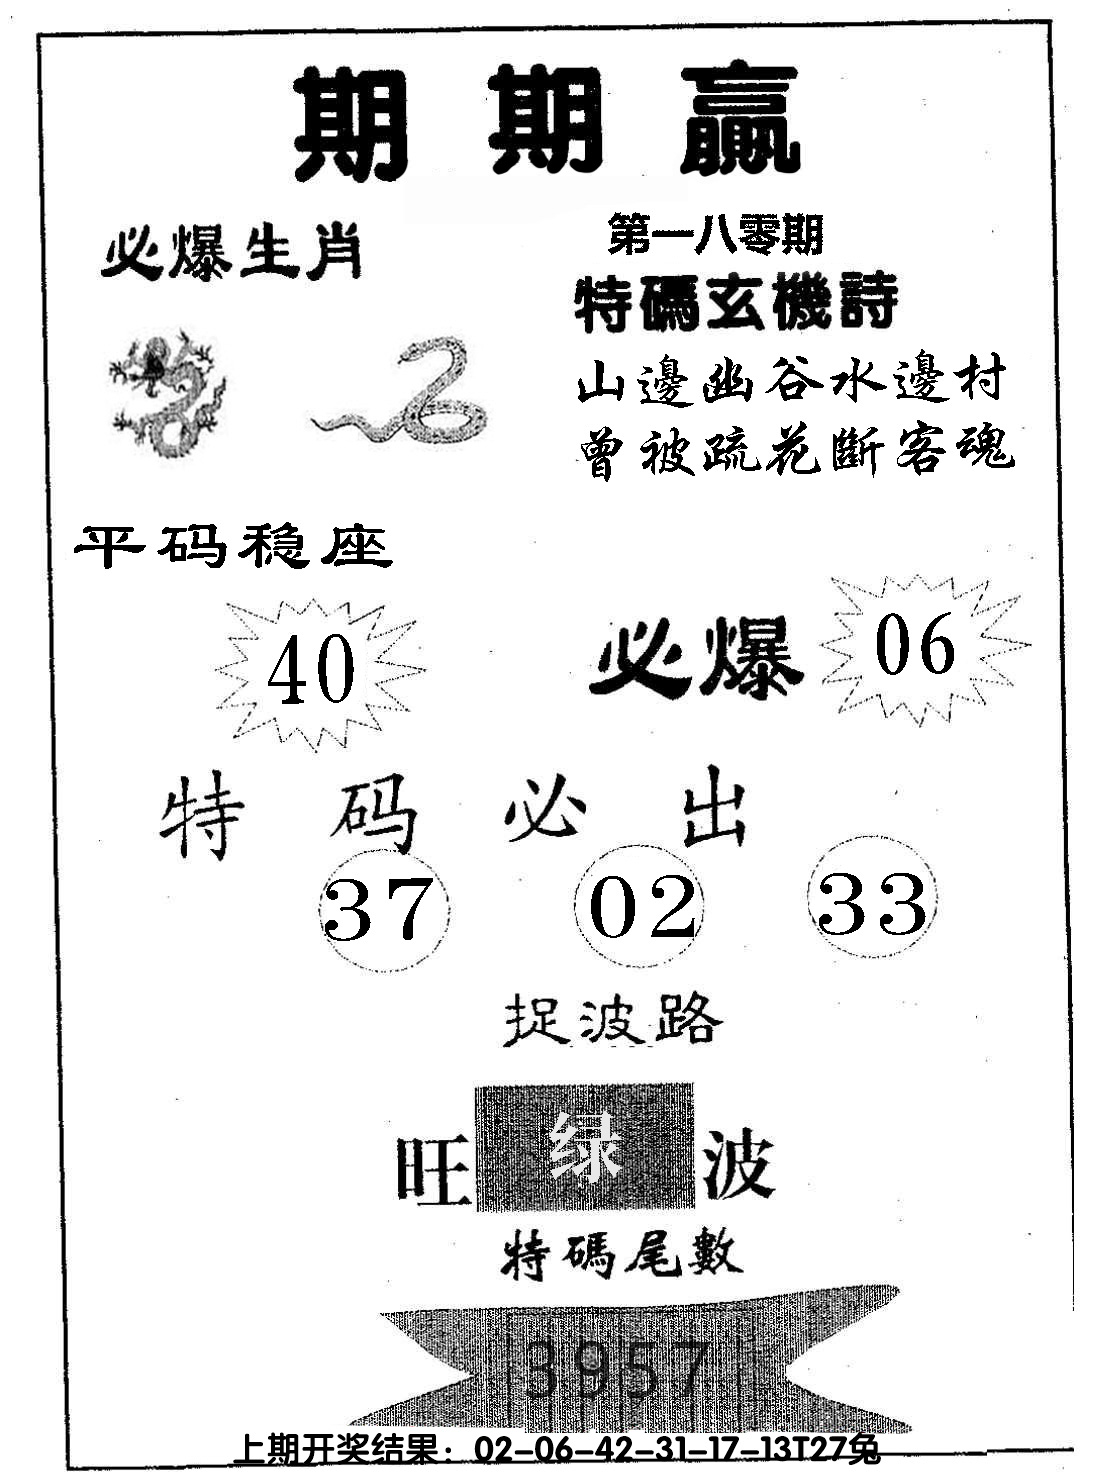 期期赢
必爆生肖
第一八零期
特碼玄機詩
山邊幽谷水邊村
曾被疏花斷客魂
平码稳座
40
必爆 06
特码必出
37 02 33
捉波路
旺 绿 波
特碼尾數
3957
上期开奖结果：02-06-42-31-17-13T27兔